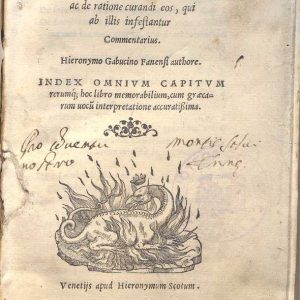 ac de ratione curandi eos, qui
ab illis infestantur
Commentarius.
Hieronymo Gabucino Fanensi authore.
INDEX OMNIVM CAPITVM
rerumq; hoc libro memorabilium, cum græca-
rum uocū interpretatione accuratißima.
Venetijs apud Hieronymum Scotum.